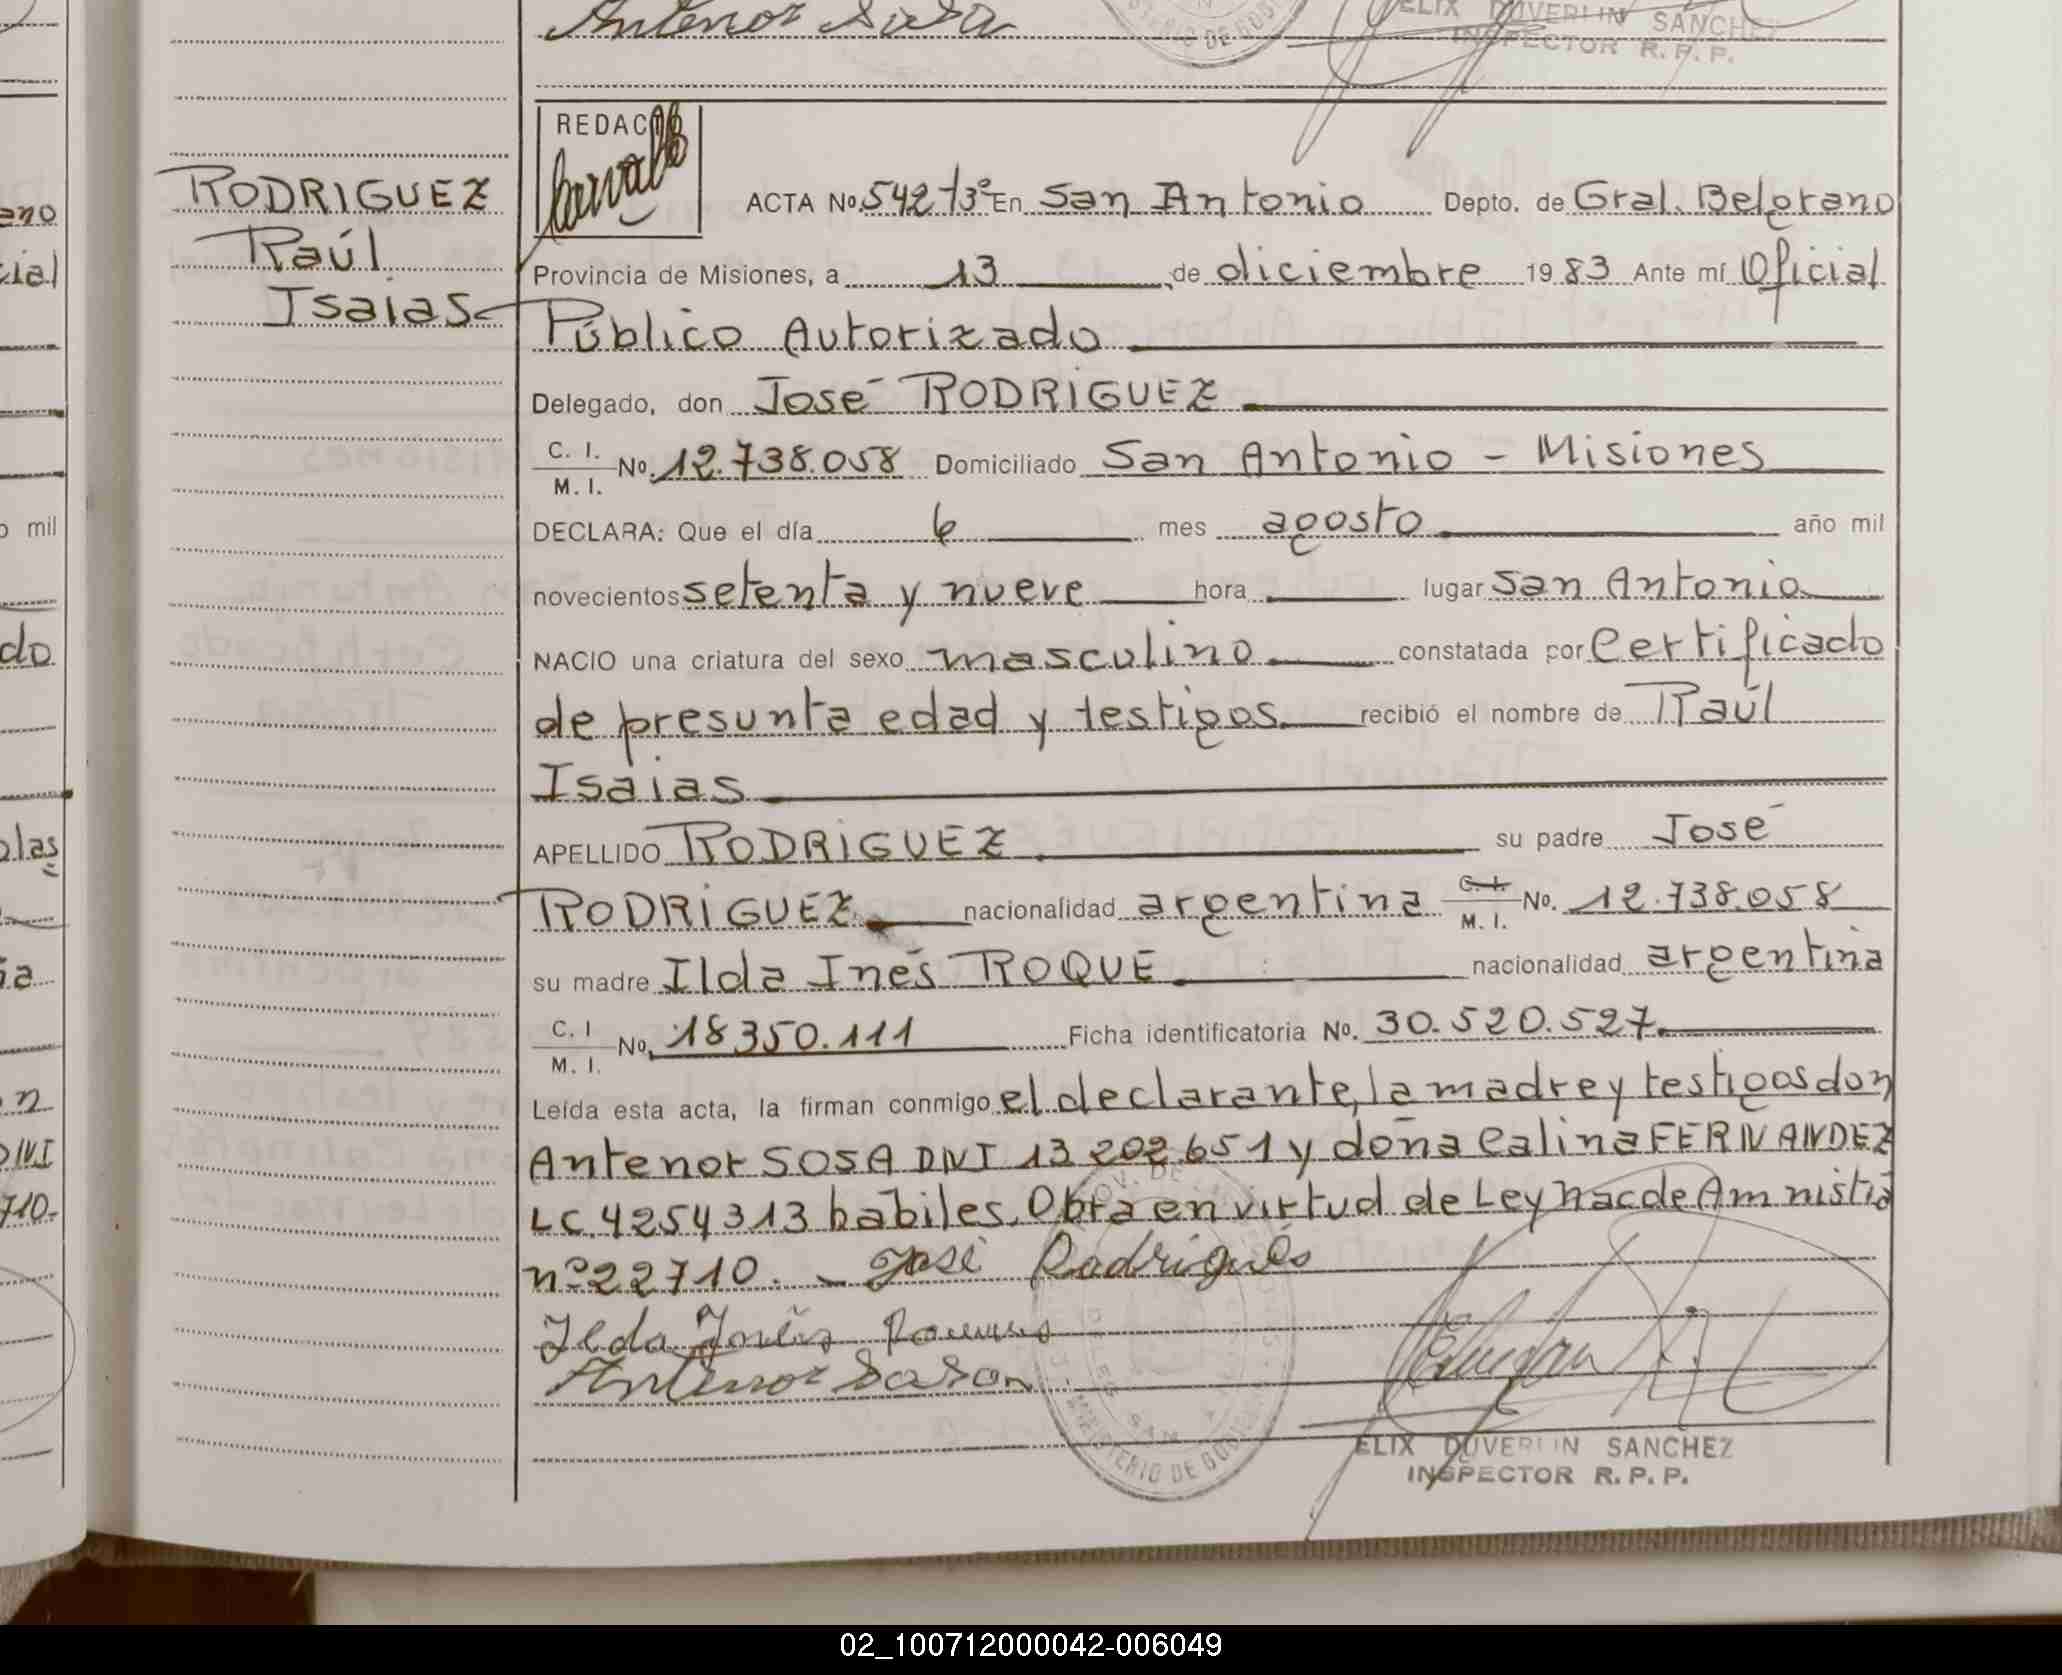 Antenor Sosa
ELIX DUVERLIN SANCHEZ
INSPECTOR R. P. P.
RODRIGUEZ
Raúl
Isaias
REDAC
ACTA No. 542 T3º En San Antonio Depto. de Gral. Belgrano
Provincia de Misiones, a 13 de diciembre 1983 Ante mí Oficial
Público Autorizado
Delegado, don José RODRIGUEZ
C. I.
M. I. No. 12.738.058 Domiciliado San Antonio - Misiones
DECLARA: Que el día 6 mes agosto año mil
novecientos setenta y nueve hora lugar San Antonio
NACIO una criatura del sexo masculino constatada por Certificado
de presunta edad y testigos recibió el nombre de Raúl
Isaias
APELLIDO RODRIGUEZ su padre José
RODRIGUEZ nacionalidad argentina C. I. M. I. No. 12.738.058
su madre Ilda Inés ROQUE nacionalidad argentina
C. I
M. I. No. 18350.111 Ficha identificatoria No. 30.520.527
Leída esta acta, la firman conmigo el declarante, la madre y testigos don
Antenor SOSA DNI 13 202.651 y doña Calina FERNANDEZ
LC 4254313 habiles. Obra en virtud de Ley nac de Amnistia
nº 22710. José Rodrigués
Ilda Inés
Antenor Sosa
PROV. DE
MINISTERIO DE GOBIERNO
ELIX DUVERLIN SANCHEZ
INSPECTOR R. P. P.
ano
cial
o mil
do
olas
ia
n
DNI
710.
02_100712000042-006049